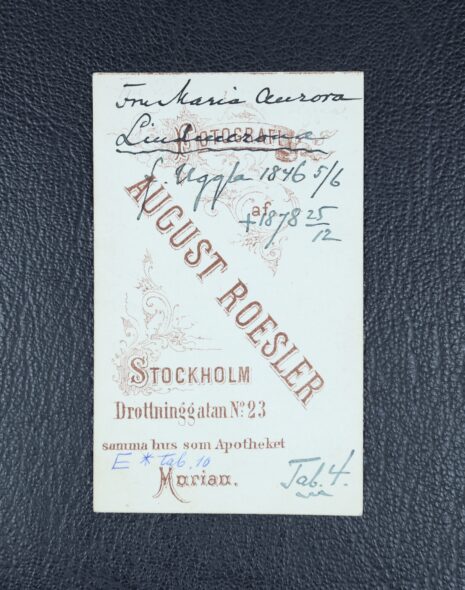 Fru Maria Aurora
FOTOGRAFI
f. Uggla 1846 5/6
af
+ 1878 25/12
AUGUST ROESLER
STOCKHOLM
Drottninggatan No. 23
samma hus som Apotheket
E * tab. 10
Morian.
Tab. 4.